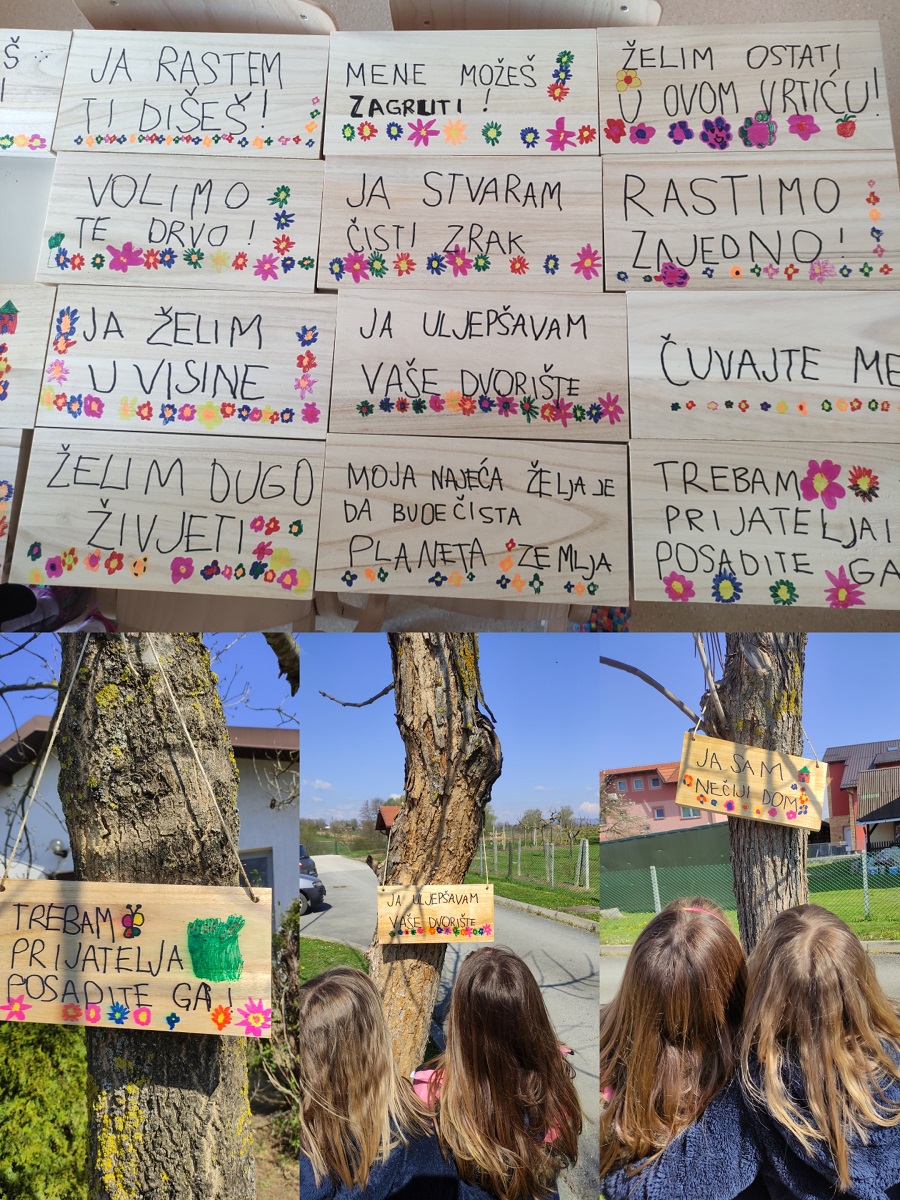 Š
I
JA RASTEM
TI DIŠEŠ!
MENE MOŽEŠ
ZAGRLITI!
ŽELIM OSTATI
U OVOM VRTIĆU!
VOLIMO
TE DRVO!
JA STVARAM
ČISTI ZRAK
RASTIMO
ZAJEDNO!
JA ŽELIM
U VISINE
JA ULJEPŠAVAM
VAŠE DVORIŠTE
ČUVAJTE ME
ŽELIM DUGO
ŽIVJETI
MOJA NAJEĆA ŽELJA JE
DA BUDE ČISTA
PLANETA ZEMLJA
TREBAM
PRIJATELJA I
POSADITE GA
TREBAM
PRIJATELJA
POSADITE GA!
JA ULJEPŠAVAM
VAŠE DVORIŠTE
JA SAM
NEČIJI DOM